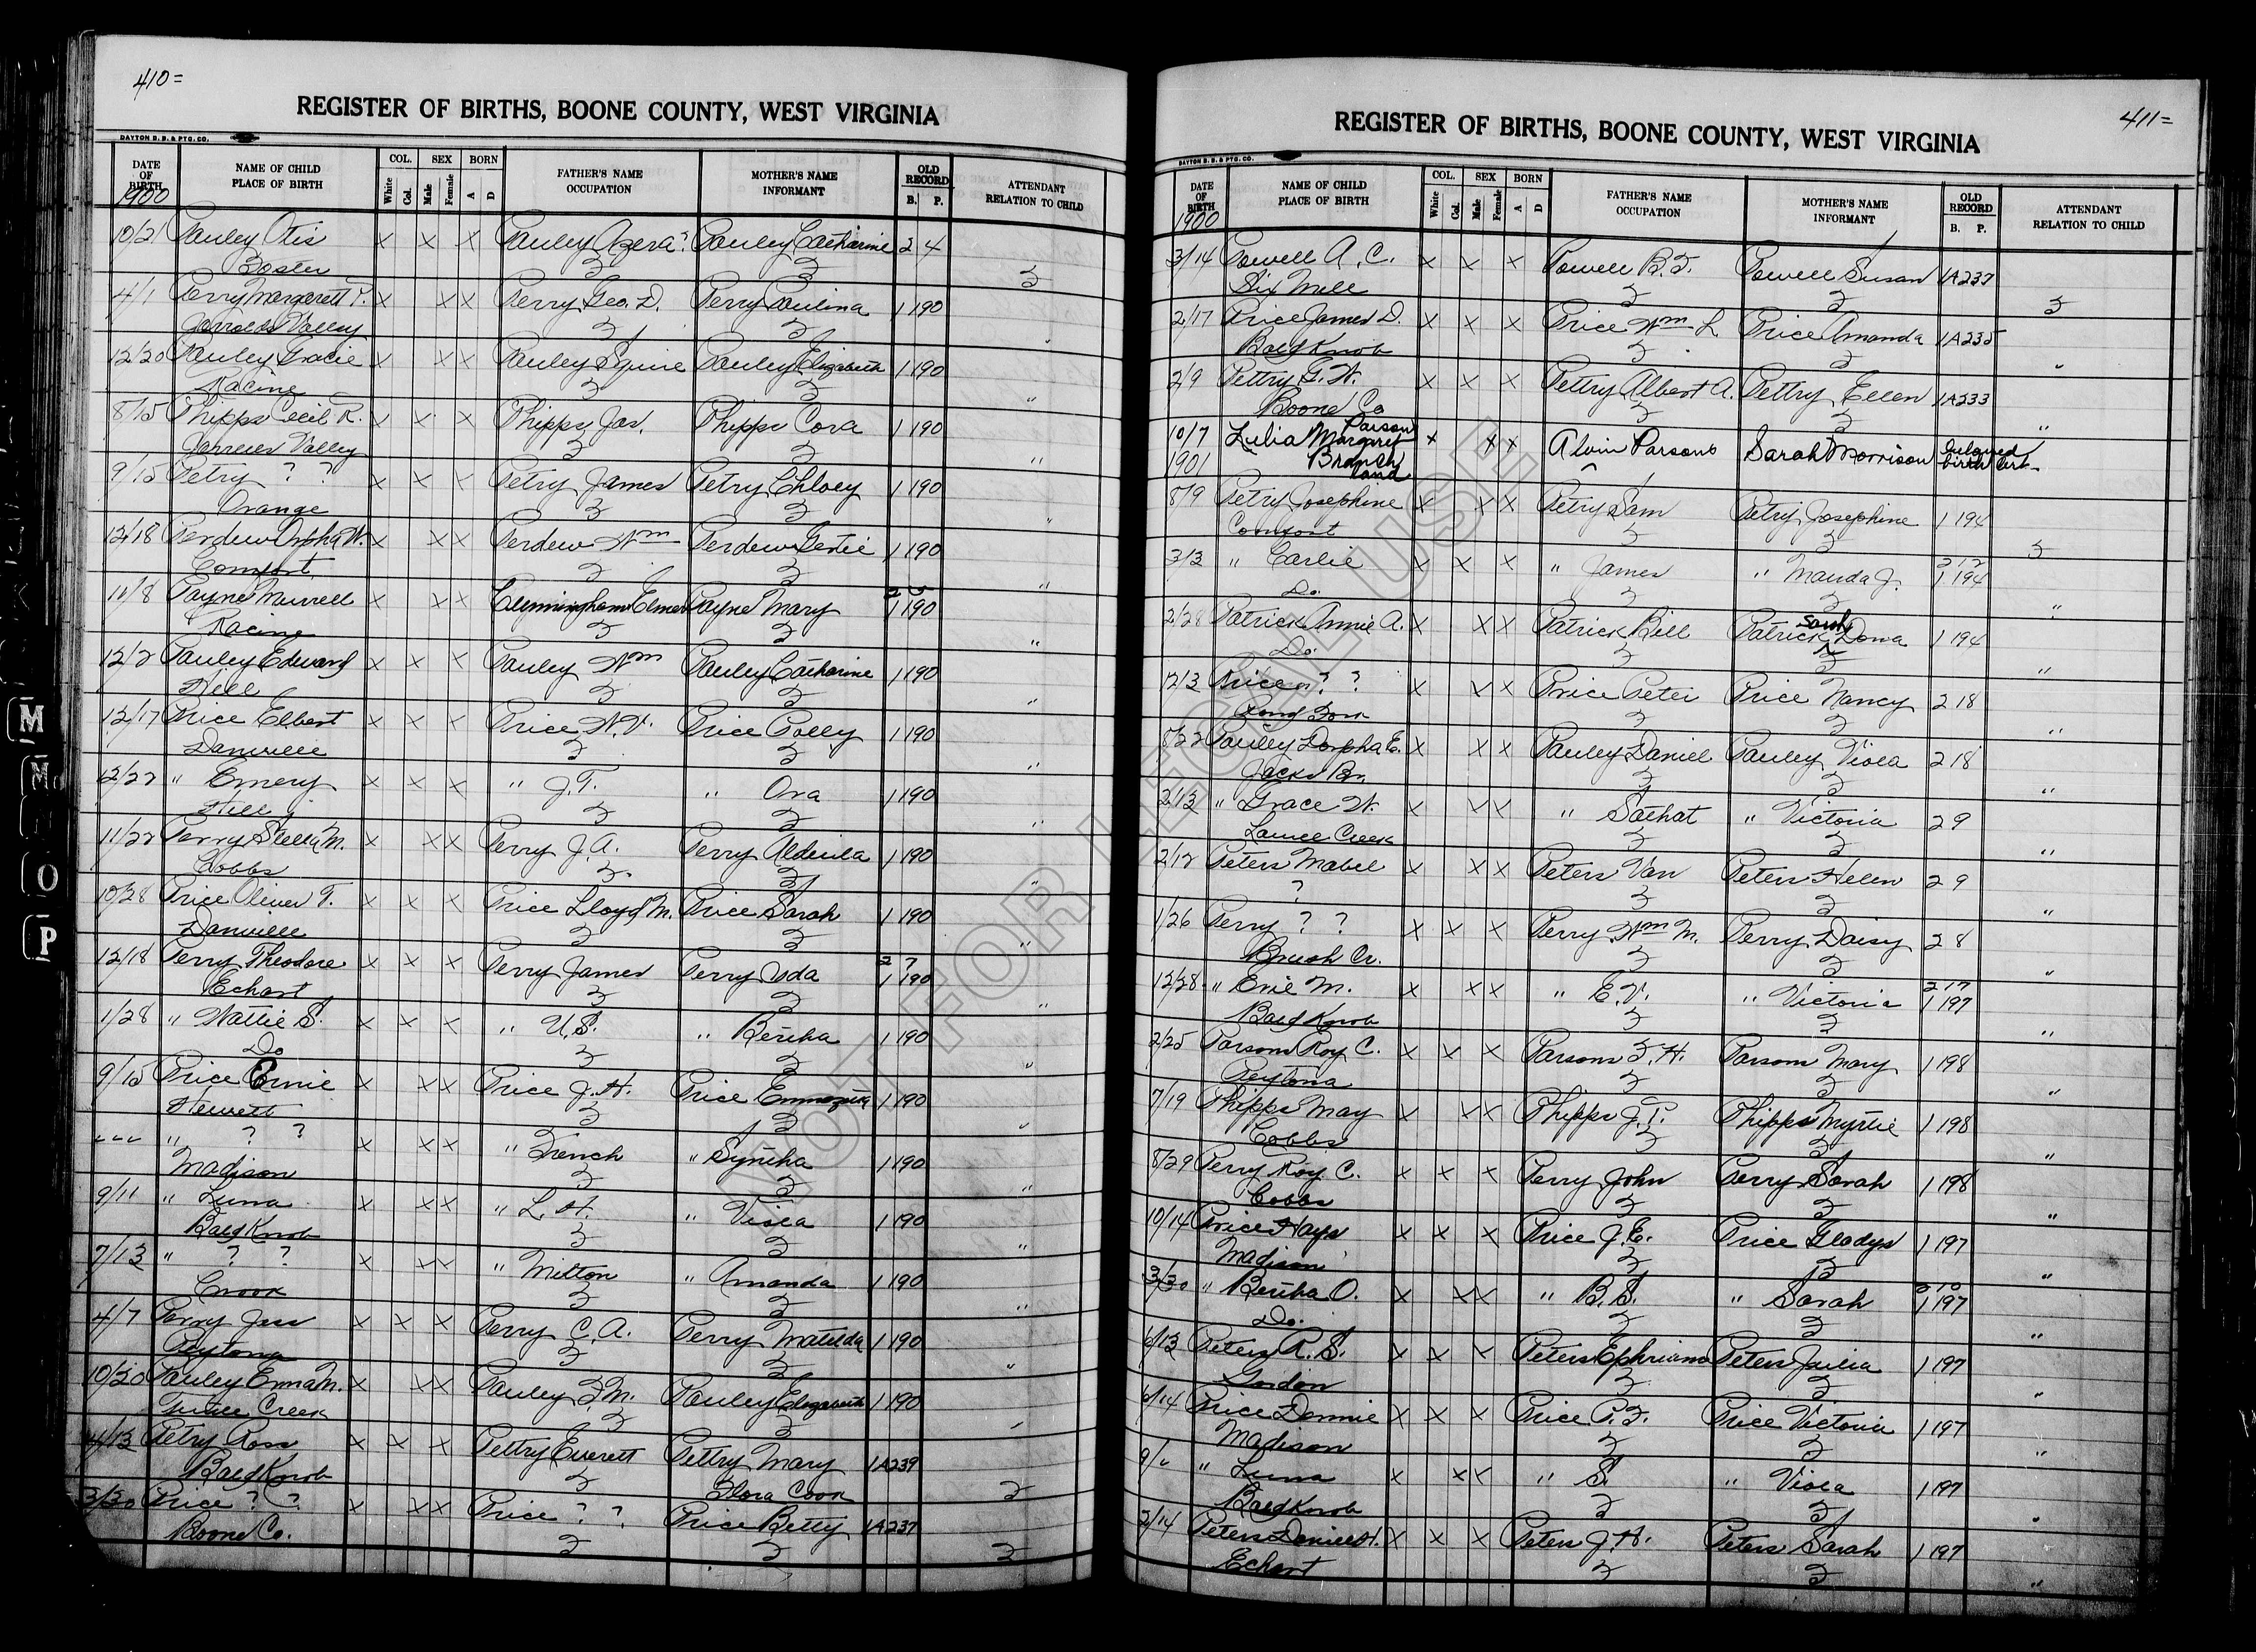 410=
REGISTER OF BIRTHS, BOONE COUNTY, WEST VIRGINIA
DAYTON B. B. & PTG. CO.
DATE OF BIRTH NAME OF CHILD PLACE OF BIRTH COL. White Col. SEX Male Female BORN A D FATHER'S NAME OCCUPATION MOTHER'S NAME INFORMANT OLD RECORD B. P. ATTENDANT RELATION TO CHILD
1900
10/21 Pauley Otis x x x Pauley Azera? Pauley Catharine 2 4
Foster ? ? ?
4/1 Perry Margarett P. x x x Perry Geo. D. Perry Paulina 1 190
Jarrolds Valley ? ? "
12/20 Pauley Gracie x x x Pauley Squire Pauley Elizabeth 1 190
Racine ? ? "
8/15 Phipps Cecil R. x x x Phipps Jas. Phipps Cora 1 190
Valley ? ? "
9/15 Petry ? ? x x x Petry James Petry Chloey 1 190
Orange ? ? "
12/18 Perdew Orpha W. x x x Perdew Wm Perdew Gertie 1 190
Comfort ? ? "
11/8 Payne Murrell x x x Elmer Payne Mary 1 190
Racine ? ? "
12/2 Pauley Edward x x x Pauley Wm Pauley Catharine 1 190
Hill ? ? "
12/17 Price Elbert x x x Price W.V. Price Polly 1 190
Danville ? ? "
12/27 " Emery x x x " J.T. " Ora 1 190
Hill ? ? "
11/22 Perry Stella M. x x x Perry J.A. Perry 1 190
Cobbs ? ? "
10/28 Price Oliver T. x x x Price Lloyd M. Price Sarah 1 190
Danville ? ? "
12/18 Perry Theodore x x x Perry James Perry Ida 2 7 1 190
Echart ? ? "
1/28 " Wallie S. x x x " U.S. " Bertha 1 190
Do ? ? "
9/15 Price Ernie x x x Price J.H. Price 1 190
Hewett ? ? "
" ? ? x x x " French " Syntha 1 190
Madison ? ? "
9/11 " Luna x x x " L.H. " Viola 1 190
Bald Knob ? ? "
7/13 " ? ? x x x " Milton " Amanda 1 190
Crook ? ? "
4/7 Perry Jess x x x Perry C.A. Perry Matilda 1 190
Peytona ? ? "
10/20 Pauley Erma M. x x x Pauley F.M. Pauley Elizabeth 1 190
Turtle Creek ? ? "
4/13 Petry Ross x x x Pettry Everett Pettry Mary 1A239
Bald Knob ? Flora Cook ?
3/30 Price ? ? x x x Price ? ? Price Betty 1A237
Boone Co. ? ? ?
411=
REGISTER OF BIRTHS, BOONE COUNTY, WEST VIRGINIA
DAYTON B. B. & PTG. CO.
DATE OF BIRTH NAME OF CHILD PLACE OF BIRTH COL. White Col. SEX Male Female BORN A D FATHER'S NAME OCCUPATION MOTHER'S NAME INFORMANT OLD RECORD B. P. ATTENDANT RELATION TO CHILD
1900
3/14 Powell A.C. x x x Powell B.F. Powell Susan 1A237
Six Mile ? ? ?
2/17 Price James D. x x x Price Wm L Price Amanda 1A235
Bald Knob ? ? "
2/9 Pettry G.W. x x x Pettry Albert A. Pettry Ellen 1A233
Boone Co ? ? "
10/7 Lulia Margaret Parson x x x Alvin Parsons Sarah Morrison Delayed birth Cert
1901 Branchland
8/9 Petry Josephine x x x Petry Sam Petry Josephine 1 194
Comfort ? ? ?
3/3 " Carlie x x x " James " Manda J. 1 194
Do. ? ? "
2/28 Patrick Annie A. x x x Patrick Bill Patrick Sarah Dona 1 194
Do. ? ? "
12/3 Price ? ? x x x Price Peter Price Nancy 2 18
Pond Fork ? ? "
8/22 Pauley Dorpha E. x x x Pauley Daniel Pauley Viola 2 18
Jacks Br. ? ? "
2/13 " Grace W. x x x " " Victoria 2 9
Laurel Creek ? ? "
2/12 Peters Mabel x x x Peters Van Peters Helen 2 9
? ? ? "
1/26 Perry ? ? x x x Perry Wm M. Perry Daisy 2 8
Brush Cr. ? ? "
12/28 " Evie M. x x x " E.V. " Victoria 2 17 1 197
Bald Knob ? ? "
2/25 Parsons Roy C. x x x Parsons F.H. Parsons Mary 1 198
Peytona ? ? "
7/19 Phipps May x x x Phipps J.P. Phipps Myrtie 1 198
Cobbs ? ? "
8/29 Perry Roy C. x x x Perry John Perry Sarah 1 198
Cobbs ? ? "
10/14 Price Hays x x x Price J.E. Price Gladys 1 197
Madison ? ? "
3/30 " Bertha O. x x x " B.S. " Sarah 1 197
Do. ? ? "
6/13 Peters R.S. x x x Peters Ephriam Peters Julia 1 197
Gordon ? ? "
6/14 Price Dennie x x x Price P.F. Price Victoria 1 197
Madison ? ? "
9/ " Luna x x x " S. " Viola 1 197
Bald Knob ? ? "
2/14 Peters H. x x x Peters J.H. Peters Sarah 1 197
Echart ? ? "
NOT FOR LEGAL USE
M
M
O
P